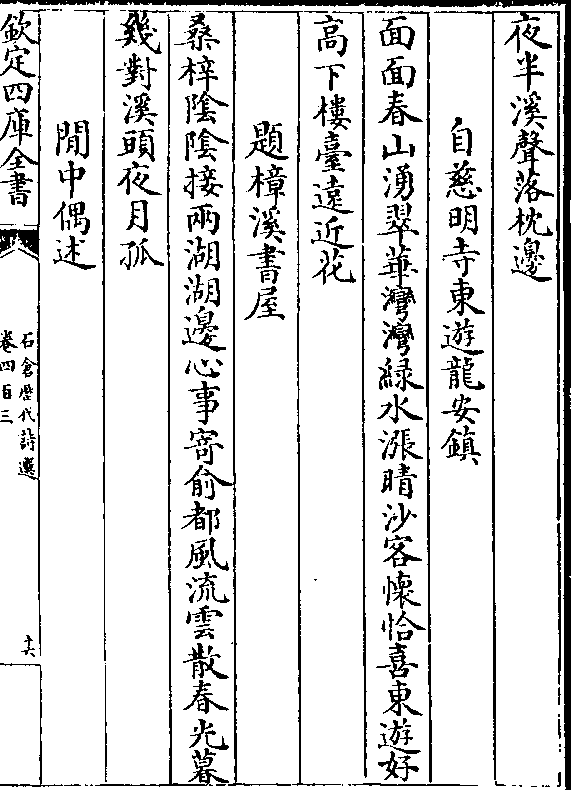 夜半溪聲落枕邊
自慈明寺東遊龍安鎮
面面春山湧翠華灣灣綠水漲晴沙客懷恰喜東遊好
高下樓臺遠近花
題樟溪書屋
桑梓陰陰接兩湖湖邊心事寄俞都風流雲散春光暮
幾對溪頭夜月孤
閒中偶述
欽定四庫全書
石倉歷代詩選
卷四百三
十六